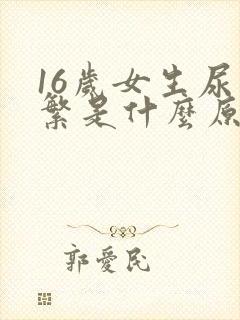 16歲女生尿
繁是什麼原
郭愛民